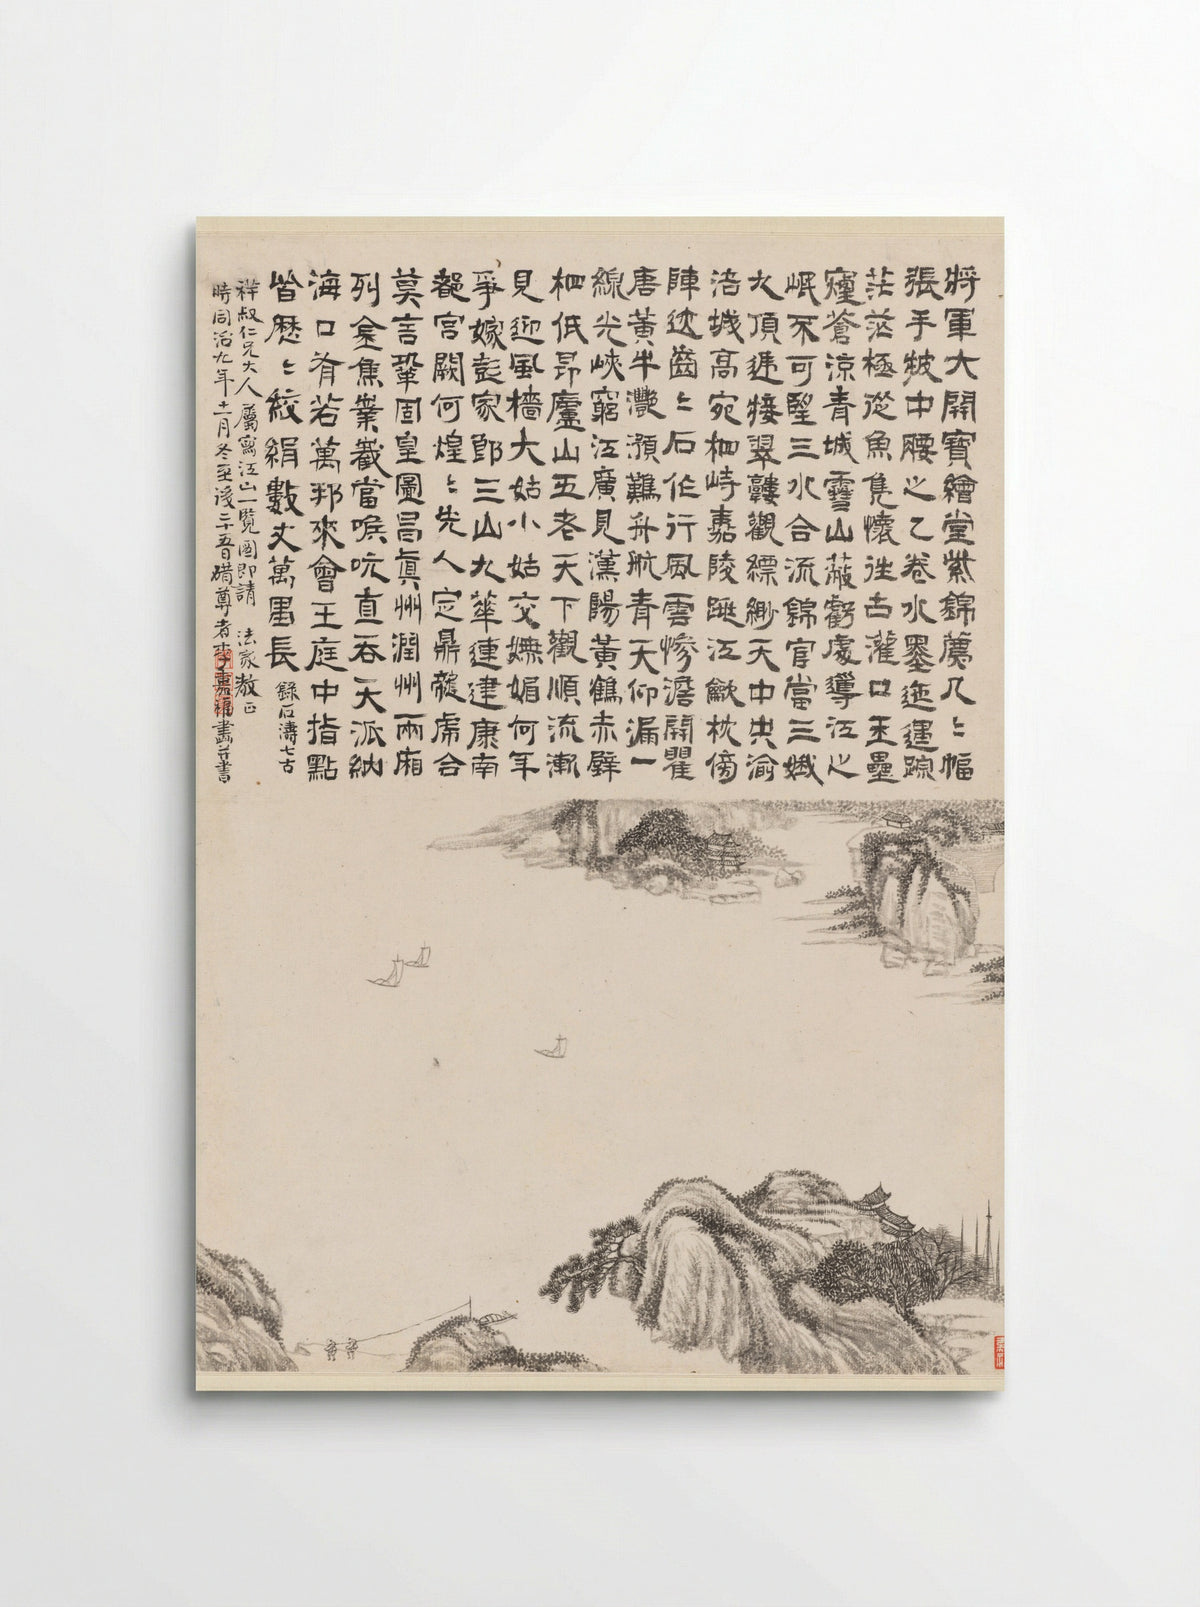 將軍大開寶繪堂紫錦萬人〻幅
張手披中腰之乙卷水墨迤邐踪
茫茫極從魚鳧懷往古灌口玉壘
窪蒼涼青城雪山蔽虧處導江之
岷不可望三水合流錦官當三峨
大頂遞接翠靉觀縹緲天中央渝
涪城高宛相峙嘉陵跳江歙枕傍
陣迹齒〻石作行風雲慘澹開瞿
唐黃牛灔澦難舟航青天仰漏一
線光峽窮江廣見漢陽黃鶴赤壁
相低昂廬山五老天下觀順流漸
見迎風檣大姑小姑交嫵媚何年
爭嫁彭家郎三山九華連建康南
都宮闕何煌〻先人定鼎龍虎合
莫言鞏固皇圖昌真州潤州兩廂
列金焦業嶻當喉吭直吞天派納
海口有若萬邦來會王庭中指點
皆歷〻絞絹數丈萬里長 錄石濤七古
祥叔仁兄大人屬寫江山一覽圖即請 法家教正
時同治九年十一月冬至後二十五日 尊者李嘉福畫并書